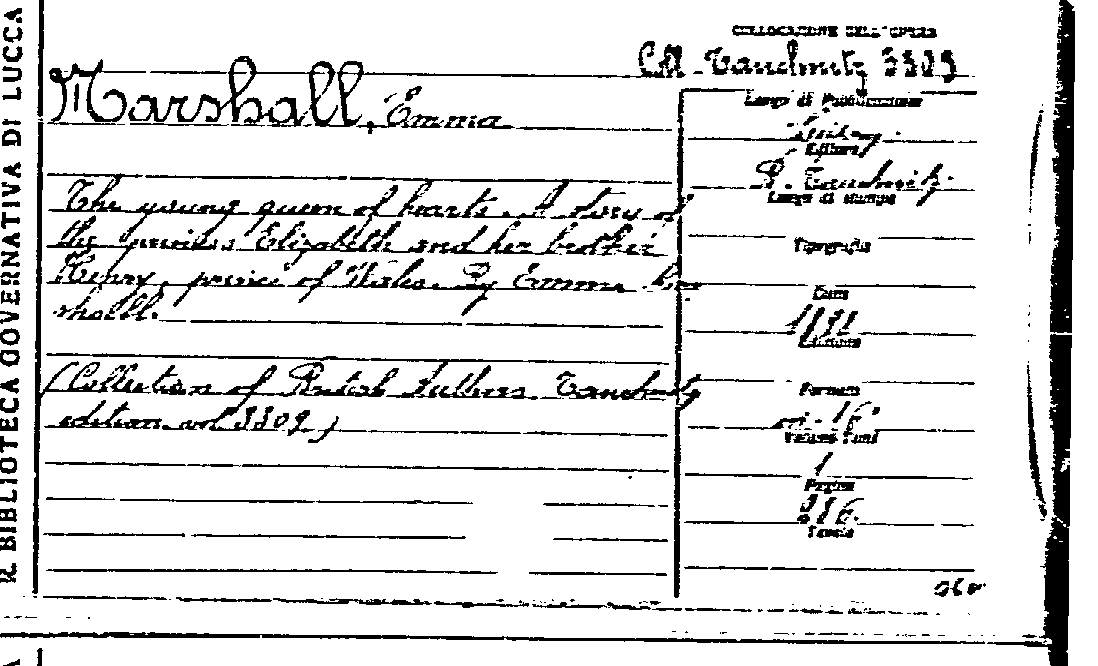 R. BIBLIOTECA GOVERNATIVA DI LUCCA
COLLOCAZIONE DELL'OPERA
Coll. Tauchnitz 3309
Marshall, Emma
Luogo di Pubblicazione
Editore
B. Tauchnitz
Luogo di stampa
The young queen of hearts. A story of
the princess Elizabeth and her brother
Henry, prince of Wales. By Emma Mar
shall.
Tipografia
Data
Edizione
(Collection of British Authors Tauchnitz
edition vol 3309)
Formato
in-16°
Volumi Tomi
1
Pagine
Tavole